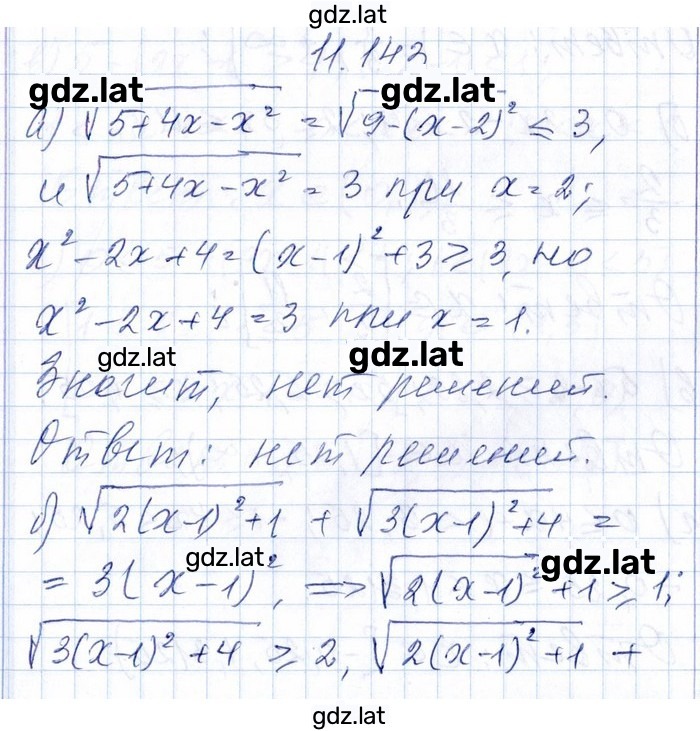 gdz.lat
11.142
gdz.lat gdz.lat
а) √(5+4x-x²) = √(9-(x-2)²) ≤ 3,
и √(5+4x-x²) = 3 при x=2;
x²-2x+4=(x-1)²+3≥3, но
x²-2x+4=3 при x=1.
gdz.lat gdz.lat
Значит, нет решений.
Ответ: нет решений.
б) √(2(x-1)²+1) + √(3(x-1)²+4) =
gdz.lat gdz.lat
= 3(x-1)², => √(2(x-1)²+1) ≥ 1;
√(3(x-1)²+4) ≥ 2, √(2(x-1)²+1) +
gdz.lat